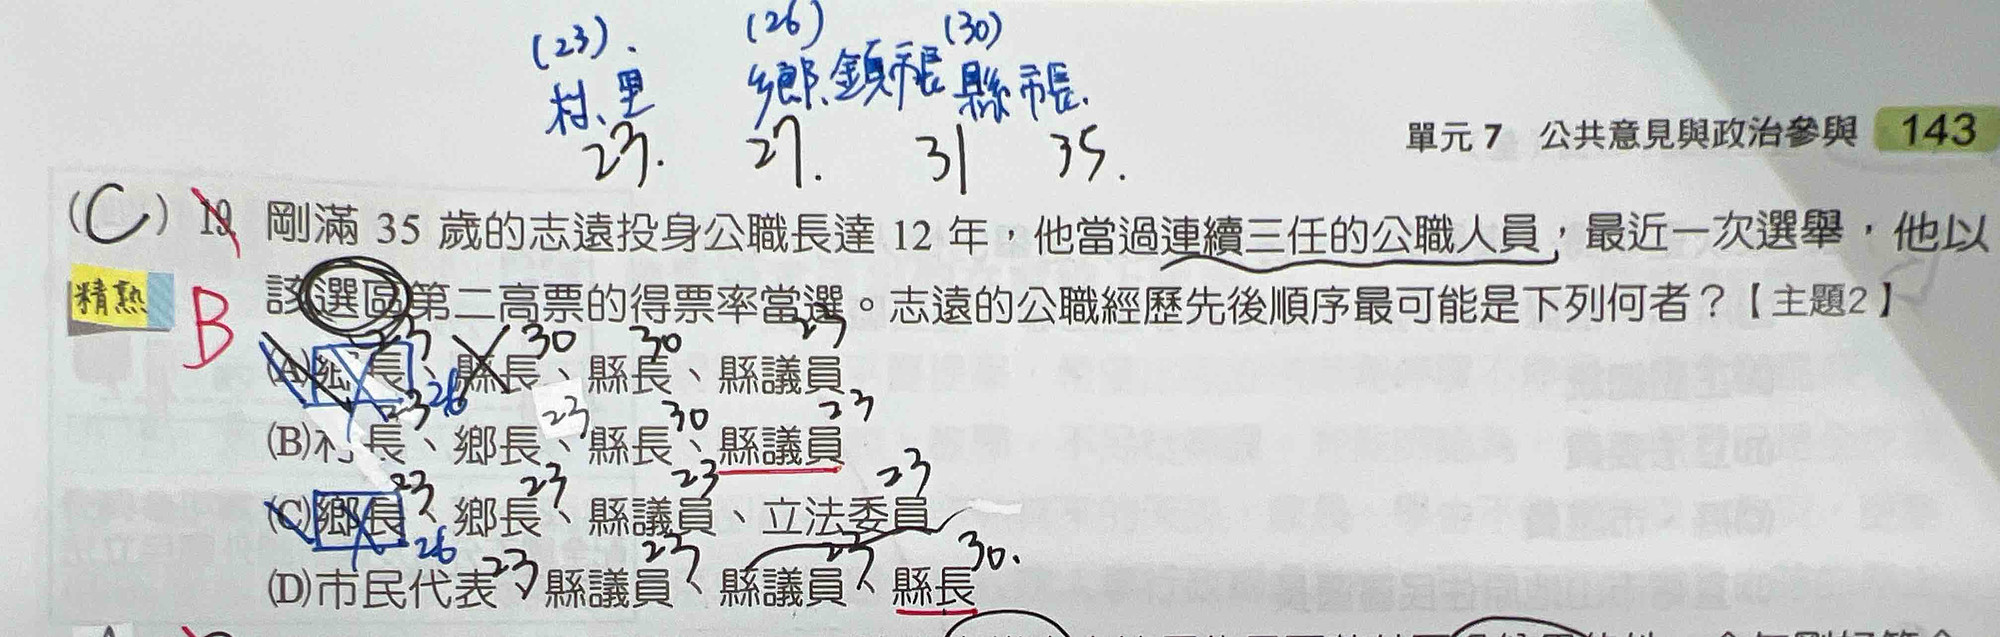 (23). (26) (30)
村、里 鄉、鎮市長 縣市長.
23. 27. 31 35.
單元7 公共意見與政治參與 143
(C) 19 剛滿 35 歲的志遠投身公職長達 12 年，他當過連續三任的公職人員，最近一次選舉，他以
精熟 B 該選區第二高票的得票率當選。志遠的公職經歷先後順序最可能是下列何者？【主題2】
23 30 30 23
(A)鄉長、縣長、縣長、縣議員
26 23 23 30 23
(B)村長、鄉長、縣長、縣議員
23 23 23 23
(C)鄉長、鄉長、縣議員、立法委員
26 23 23 23 30.
(D)市民代表、縣議員、縣議員、縣長